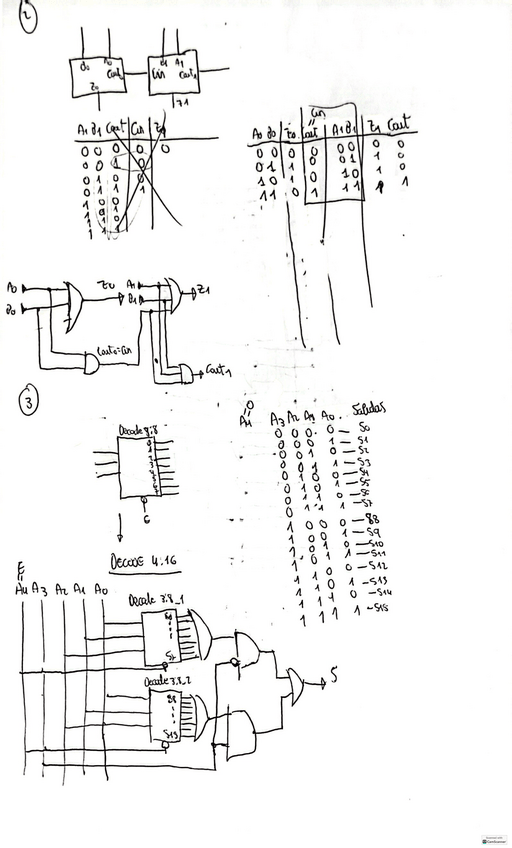 2
B0 A0 Cout0 Z0
Cin B1 A1 Cout1 Z1
A1 B1 Cout Cin Z0
0 0 0 0 0
0 0 1 0
Cin
A0 B0 Z0 Cout A1 B1 Z1 Cout
0 0 0 0 0 0 0 0
0 1 1 0 0 1 1 0
1 0 1 0 1 0 1 0
1 1 0 1 1 1 1 1
A0 Z0 A1 Z1
B0 B1
Cout0=Cin Cout1
3
Decode 3:8
0
1
2
3
4
5
6
7
G
DECODE 4:16
A4=0
A3 A2 A1 A0 Salidas
0 0 0 0 — S0
0 0 0 1 — S1
0 0 1 0 — S2
0 0 1 1 — S3
0 1 0 0 — S4
0 1 0 1 — S5
0 1 1 0 — S6
0 1 1 1 — S7
1 0 0 0 — S8
1 0 0 1 — S9
1 0 1 0 — S10
1 0 1 1 — S11
1 1 0 0 — S12
1 1 0 1 — S13
1 1 1 0 — S14
1 1 1 1 — S15
E
A4 A3 A2 A1 A0
Decode 3:8_1
S0
S7
Decode 3:8_2
S8
S15
S
Scanned with
CamScanner